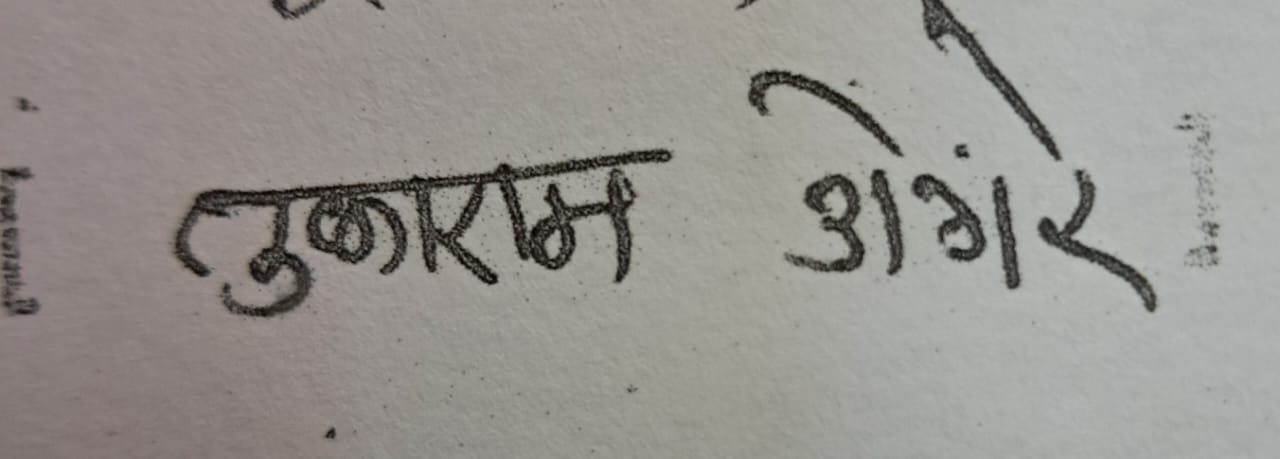 तुकाराम अेगंरे